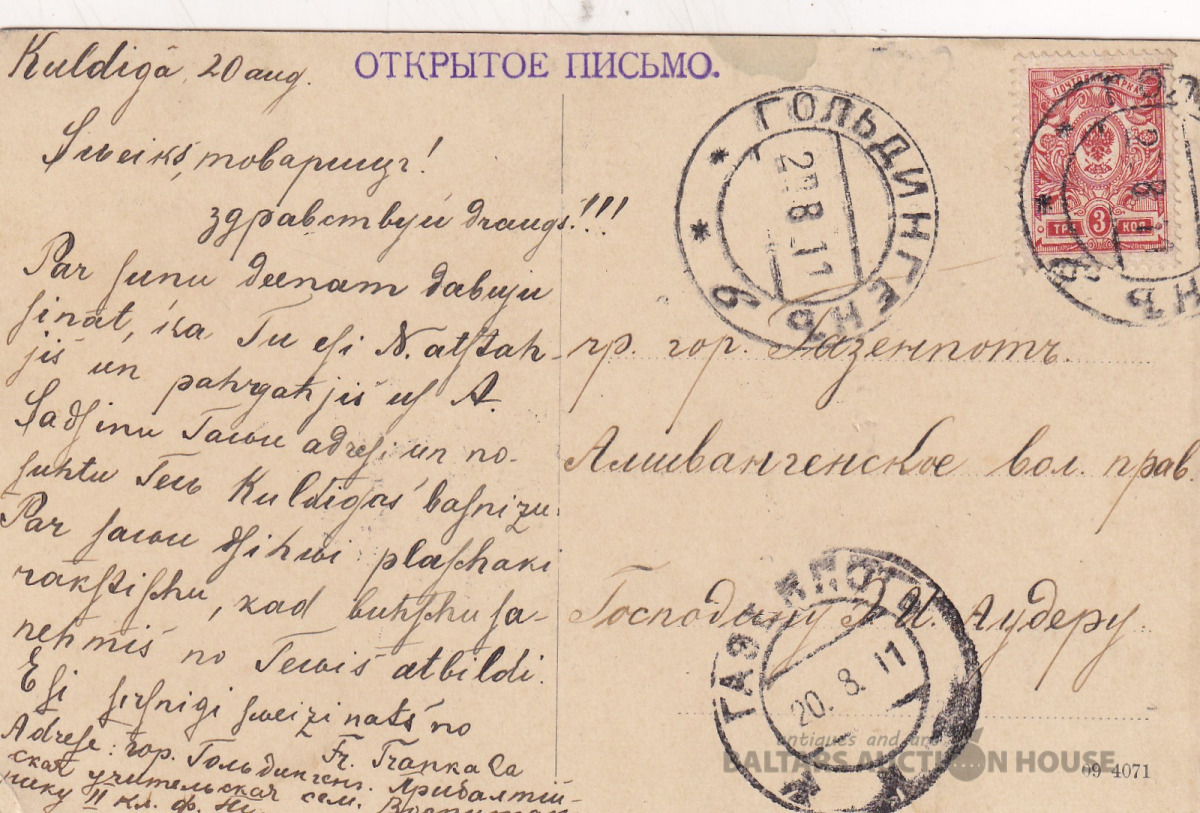 Kuldigâ, 20 aug.
ОТКРЫТОЕ ПИСЬМО.
Sweiks, товарищъ!
здравствуй draugs!!!
Par ſunu deenam dabuju
ſinat, ka Tu eſi N. atſtah-
jis un pahrgahjis uſ A.
Sadſinu Tawu adreſi un no-
ſuhtu Tew Kuldigas baſnizu.
Par ſawu dſihwi plaſchaki
rakſtiſchu, kad buhſchu ſa-
nehmis no Tewis atbildi.
Eſi ſirſnigi ſweizinats no
Fr. Tranka
Adreſe: гор. Гольдинген. Прибалтій-
ская учительская сем.
нику II кл. Ф.
ГОЛЬДИНГЕНЪ
2.8.11
6
ТРИ 3 КОП
гр. гор. Газенпотъ.
Алшвангенское вол. прав.
Господину И. Аудеру
ГАЗЕНПОТЪ
20.8.11
antiques and art
BALTARS AUCTION HOUSE
09 4071